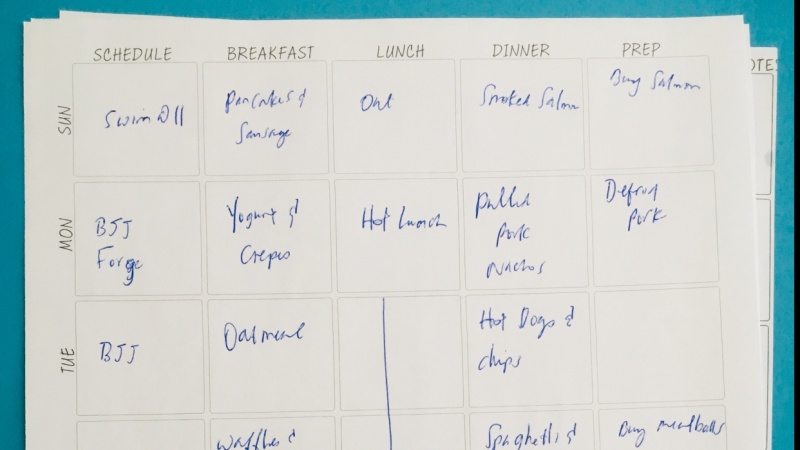 SCHEDULE BREAKFAST LUNCH DINNER PREP
OTES
SUN
Swim @ 11
Pancakes &
Sausage
Out
Smoked Salmon
Buy Salmon
MON
BJJ
Forge
Yogurt &
Crepes
Hot Lunch
Pulled
Pork
Nachos
Defrost
Pork
TUE
BJJ
Oatmeal
Hot Dogs &
Chips
Waffles &
Spaghetti &
Buy meatballs